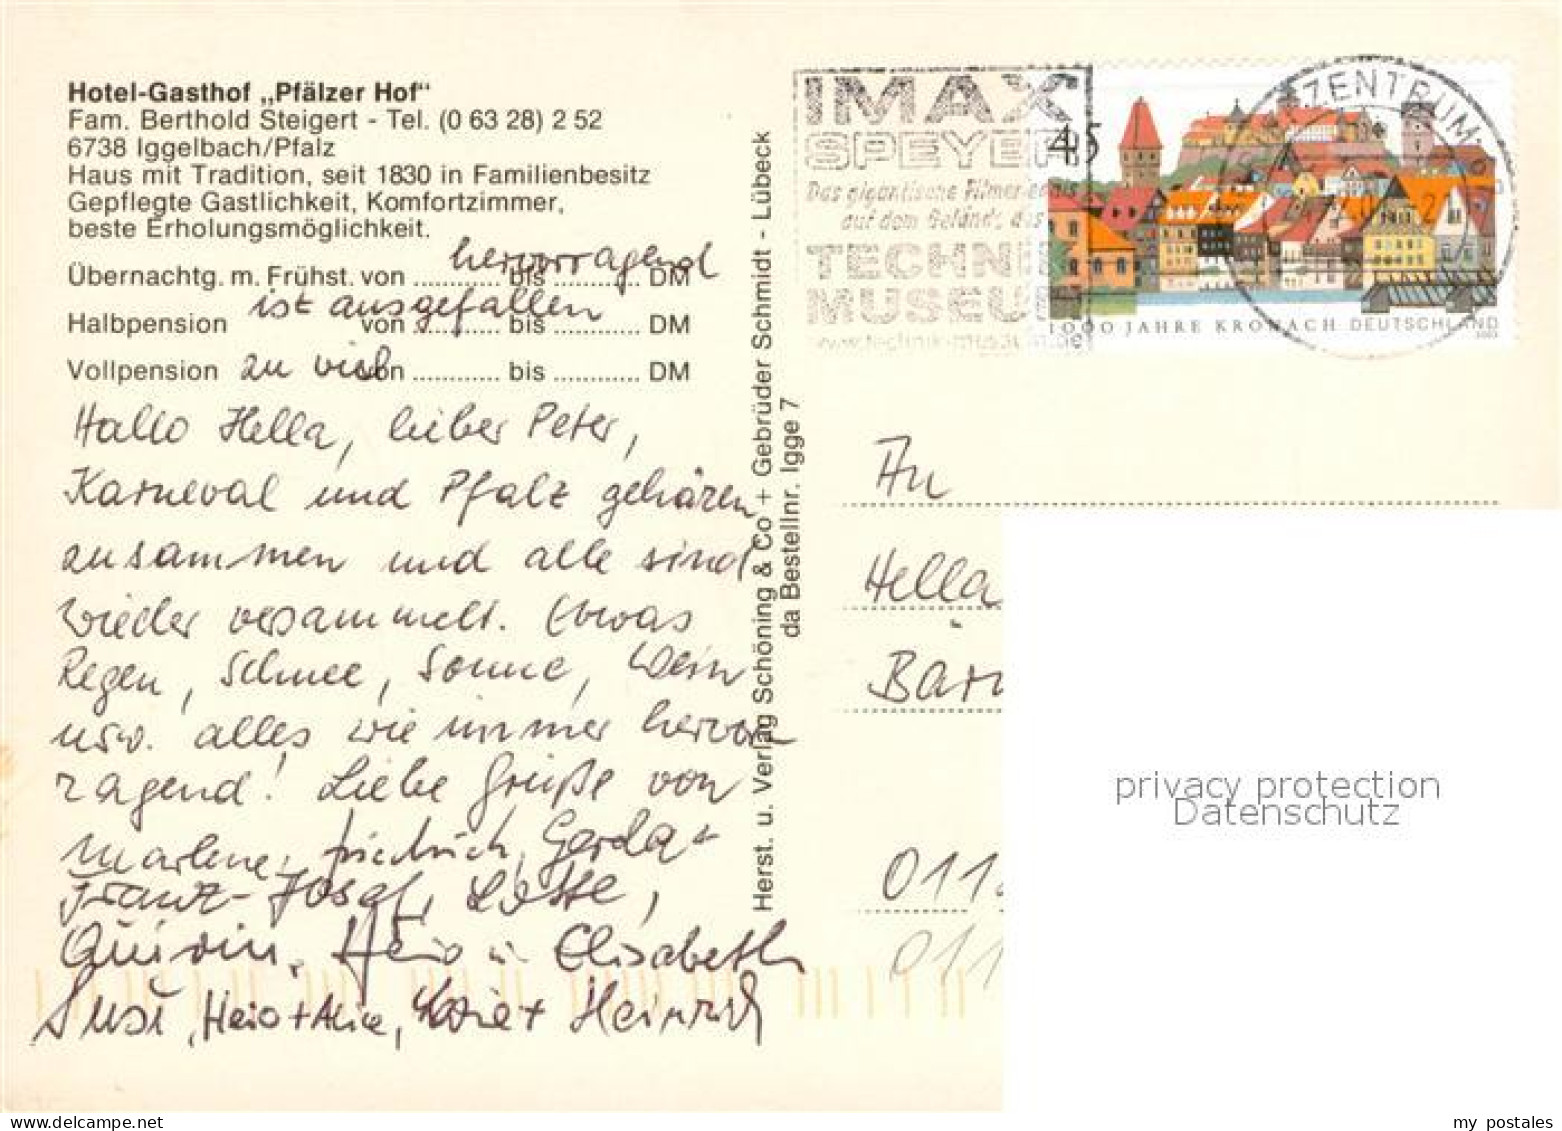 Hotel-Gasthof „Pfälzer Hof“
Fam. Berthold Steigert - Tel. (0 63 28) 2 52
6738 Iggelbach/Pfalz
Haus mit Tradition, seit 1830 in Familienbesitz
Gepflegte Gastlichkeit, Komfortzimmer,
beste Erholungsmöglichkeit.
hervorragend
Übernachtg. m. Frühst. von ............ bis ............ DM
ist ausgefallen
Halbpension von ............ bis ............ DM
Vollpension von ............ bis ............ DM
zu viel
Hallo Hella, lieber Peter,
Karneval und Pfalz gehören
zusammen und alle sind
wieder versammelt. Etwas
Regen, Schnee, Sonne, Wein
usw. alles wie immer hervor
ragend! Liebe Grüße von
Marlene, Friedrich, Gerda +
Franz-Josef, Lotte,
Quirin, Heio u Elisabeth
Susi, Heio + Alice, + Heinrich
Herst. u. Verlag Schöning & Co + Gebrüder Schmidt - Lübeck
da Bestellnr. Igge 7
IMAX
SPEYER
Das gigantische Filmerlebnis
auf dem Gelände des
TECHNIK
MUSEUM
www.technik-museum.de
45
1000 JAHRE KRONACH DEUTSCHLAND
ZENTRUM
An
Hella
Bärn
011
011
privacy protection
Datenschutz
my postales